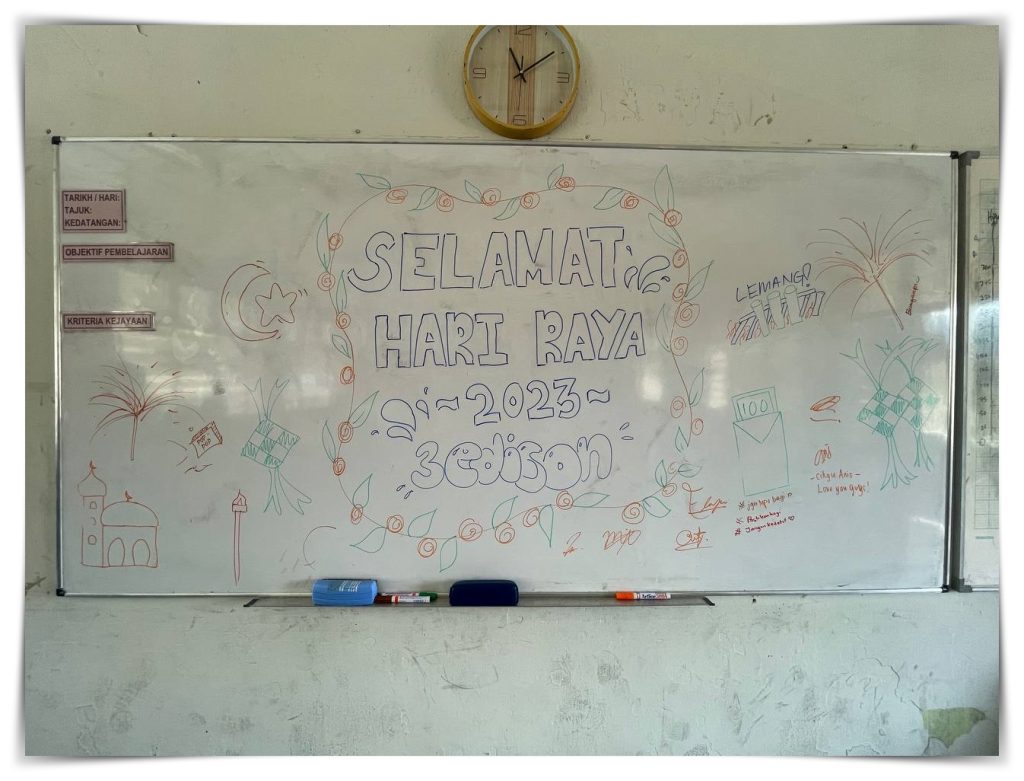 12
3
6
9
TARIKH / HARI:
TAJUK:
KEDATANGAN:
OBJEKTIF PEMBELAJARAN
KRITERIA KEJAYAAN
SELAMAT
HARI RAYA
~2023~
3edison
LEMANG!
POP
POP
100
- cikgu Anis -
Love you guys!